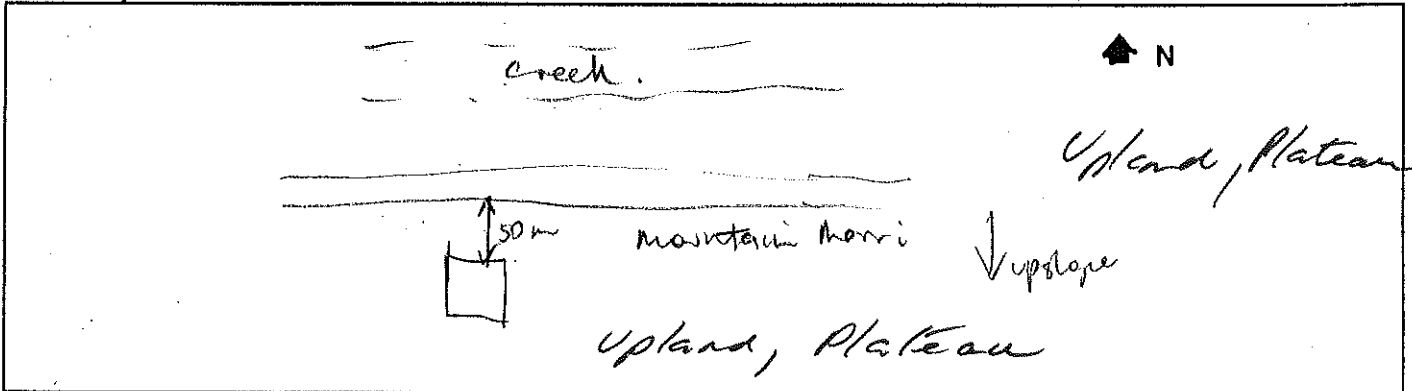 N
creek.
Upland, Plateau
50 m
Mountain Marri
upslope
Upland, Plateau